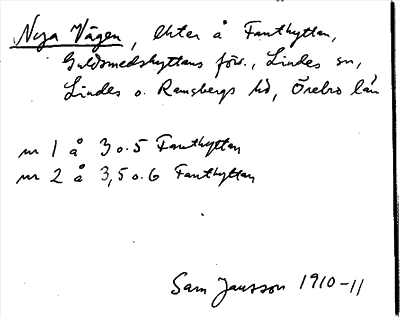 Nya Vägen, Ekter å Fanthyttan,
Guldsmedshyttans förs., Lindes sn,
Lindes o. Ramsbergs hd, Örebro län
nr 1 å 3 o. 5 Fanthyttan
nr 2 å 3,5 o. 6 Fanthyttan
Sam Jansson 1910-11